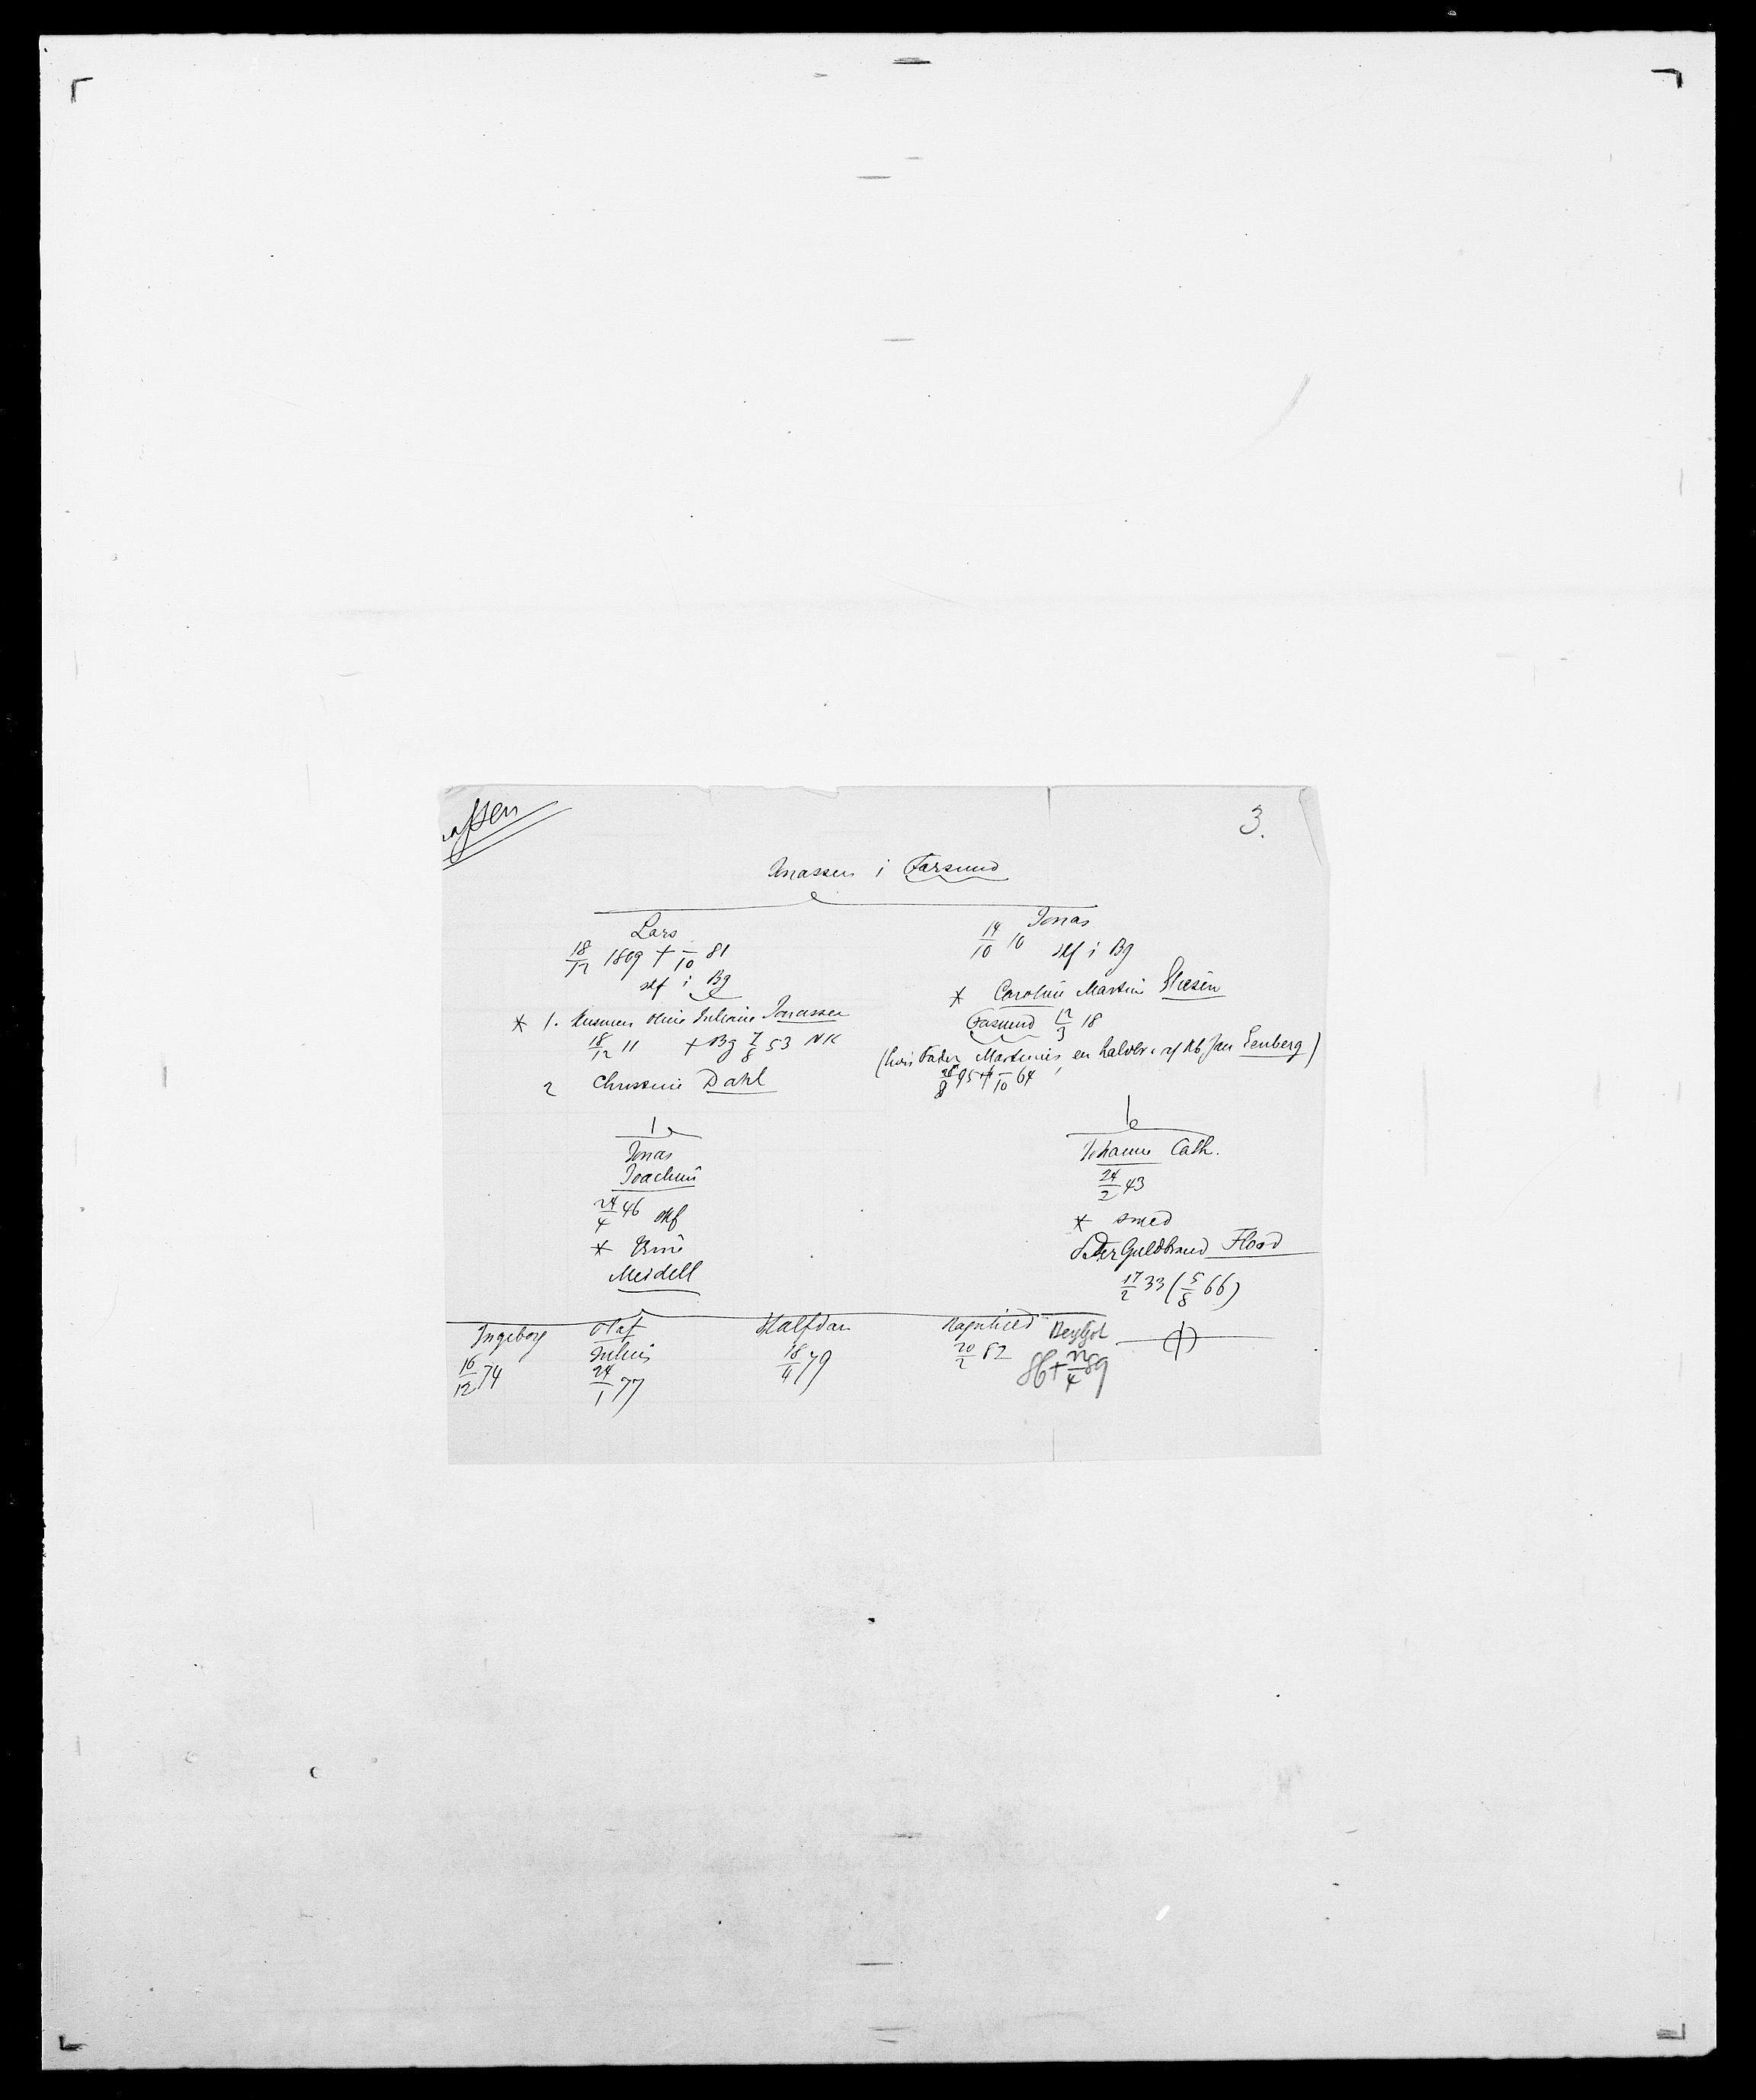 assen
3.
Jonassen i Farsund
Lars
18/12 1809 † –/10 81
skf i Bg
* 1. Susanne Oline Juliane Jonassen
18/12 11 † Bg 7/8 53 NK
2 Christine Dahl
Jonas
14/10 10 skf i Bg
* Caroline Martine
Farsund 12/3 18
(hvis Fader Martinius, en halvbr. af Kb Jan Lenberg)
28/8 95 † –/10 64
Jonas
Joachim
24/4 46 skf
*
Meidell
Johanne Cath.
24/2 43
* smed
Peter Guldbrand Flood
17/2 33 (5/8 66)
Ingeborg
16/12 74
Olaf
Julius
24/1 77
Halfdan
18/4 79
Ragnhild
20/2 82
Bergljot
86 † 22/4 89